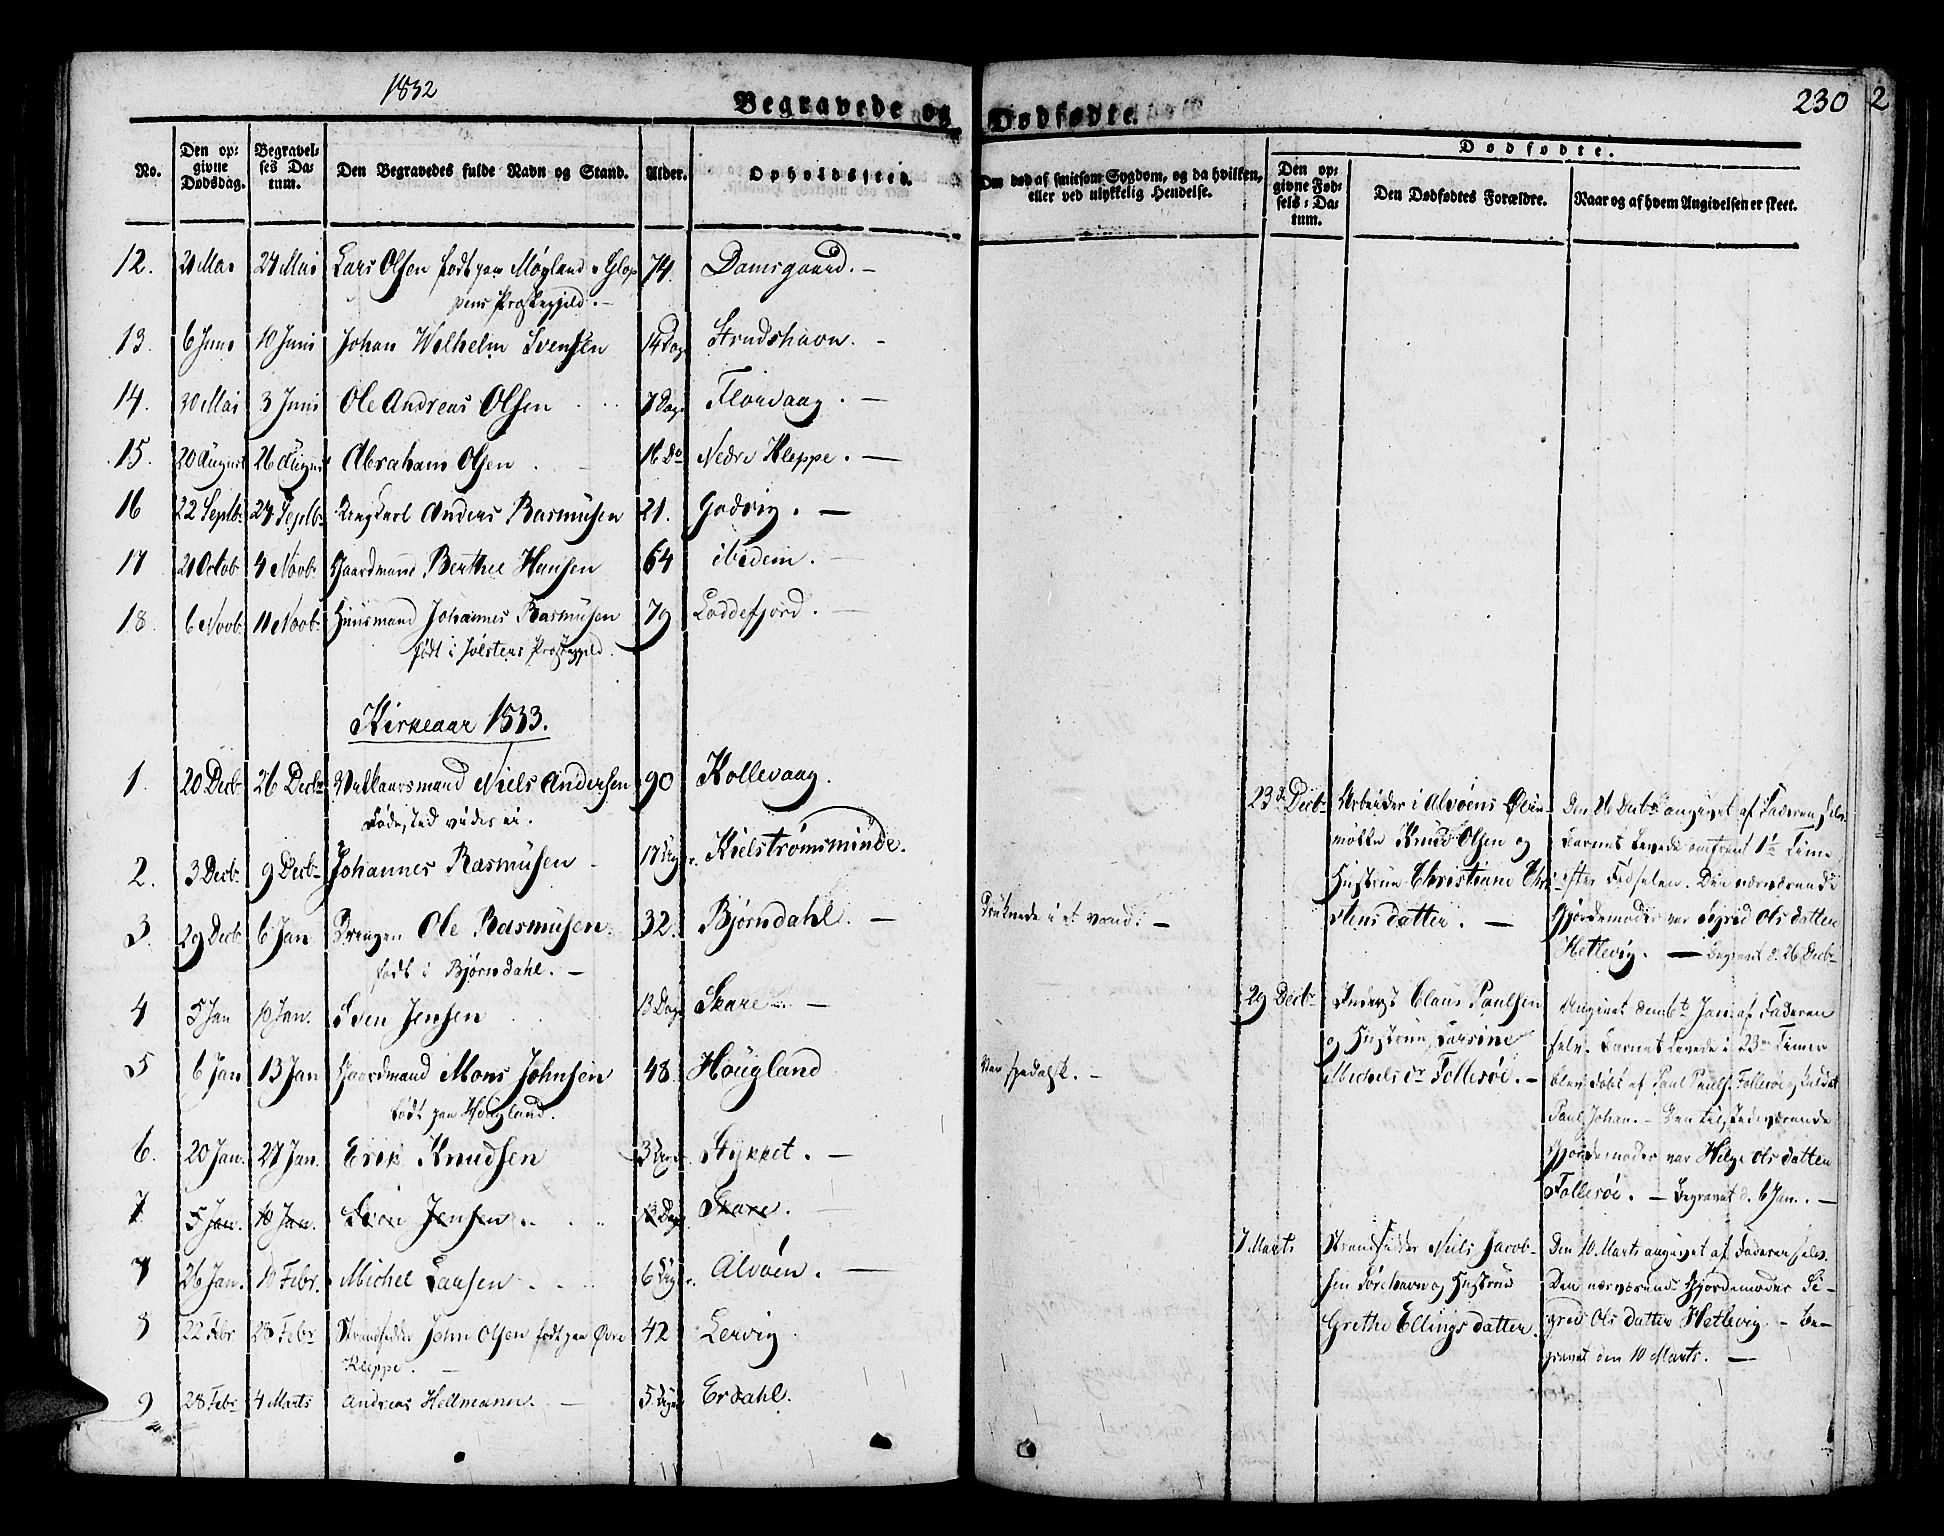 1832
Begravede og Dødfødte.
230
2
No.
Den opgivne Dødsdag.
Begravelses Datum.
Den Begravedes fulde Navn og Stand.
Alder.
Opholdssted.
Om død af smitsom Sygdom, og da hvilken, eller ved ulykkelig Hendelse.
Dødfødte.
Den opgivne Fødsels-Datum.
Den Dødfødtes Forældre.
Naar og af hvem Angivelsen er skeet.
12. 21 Mai 27 Mai Lars Olsen født paa Møgland i Glop 74. Damsgaard. –
pens Præstegjeld. –
13. 6 Juni 10 Juni Johan Wilhelm Svensen 14 Dag Strudshavn. –
14. 30 Mai 3 Juni Ole Andreas Olsen 7 Dag Florvaag. –
15. 20 August 26 August Abraham Olsen 16 Do Nedre Kleppe. –
16 22 Septbr 27 Septbr Ungkarl Anders Rasmusen 21. Godvig. –
17 21 Octob 4 Novb. Gaardmand Berthel Hansen 64 ibidem. –
18. 6 Novb. 11 Novb. Huusmand Johannes Rasmusen 79 Loddefjord. –
født i Jølsters Præstegjeld.
Kirkeaar 1833.
1. 20 Decb 26 Decbr Vilkaarsmand Niels Andersen 90 Kollevaag.
Fødested vides ei.
2. 3 Decb. 9 Decb. Johannes Rasmusen 17 Uger. Kielstrømsminde.
3. 29 Decb. 6 Jan Drengen Ole Rasmusen. 32. Bjørndahl. – Druknede i et vand. –
født i Bjørndahl. –
4 5 Jan 10 Jan. Sven Jensen 13 Dage Skare. –
5 6 Jan 13 Jan Gaardmand Mons Johnsen 48. Hougland Var spedalsk. –
født paa Hougland.
6. 20 Jan. 27 Jan. Erik Knudsen 3 Uger. Stykket. –
7 5 Jan. 10 Jan. Sven Jensen. 13 Dage Skare.
7 26 Jan. 10 Febr. Michel Larsen. 6 Uger. Alvøen. –
8 22 Febr 28 Febr Strandsidder John Olsen født paa Øvre 42 Lervig
Kleppe. –
9 28 Febr 4 Marts Andreas Heltmann. – 5 Uger Erdahl.
23 Decbr Arbeider i Alvøens Øvre
mølle Knud Olsen og
Hustrue Christiane Chri
stensdatter. –
Den 26 Decbr angivet af Faderen selv.
Barnet levede omtrent 1½ Time
efter Fødselen. Den nærværende
Gjordemoder var Sigrid Olsdatter
Hetlevig. – Begravet d. 26 Decbr
29 Decbr Inderst Claus Paulsen
og Hustrue Larsine
Michelsdr Follesøe. –
Angivet den 6te Jan. af Faderen
selv. Barnet levede i 23 Timer
blev døbt af Paul Pauls. Follesøe og kaldet
Paul Johan. – Den tilstedeværende
Gjordemoder var Helge Olsdatter
Follesøe. – Begravet d. 6 Jan. –
7 Marts Strandsidder Niels Jacob-
sen og Hustrue
Grethe Ellingsdatter.
Den 10 Marts angivet af Faderen selv.
Den nærværende Gjordemoder Si-
grid Olsdatter Hetlevig – Be-
gravet den 10 Marts. –